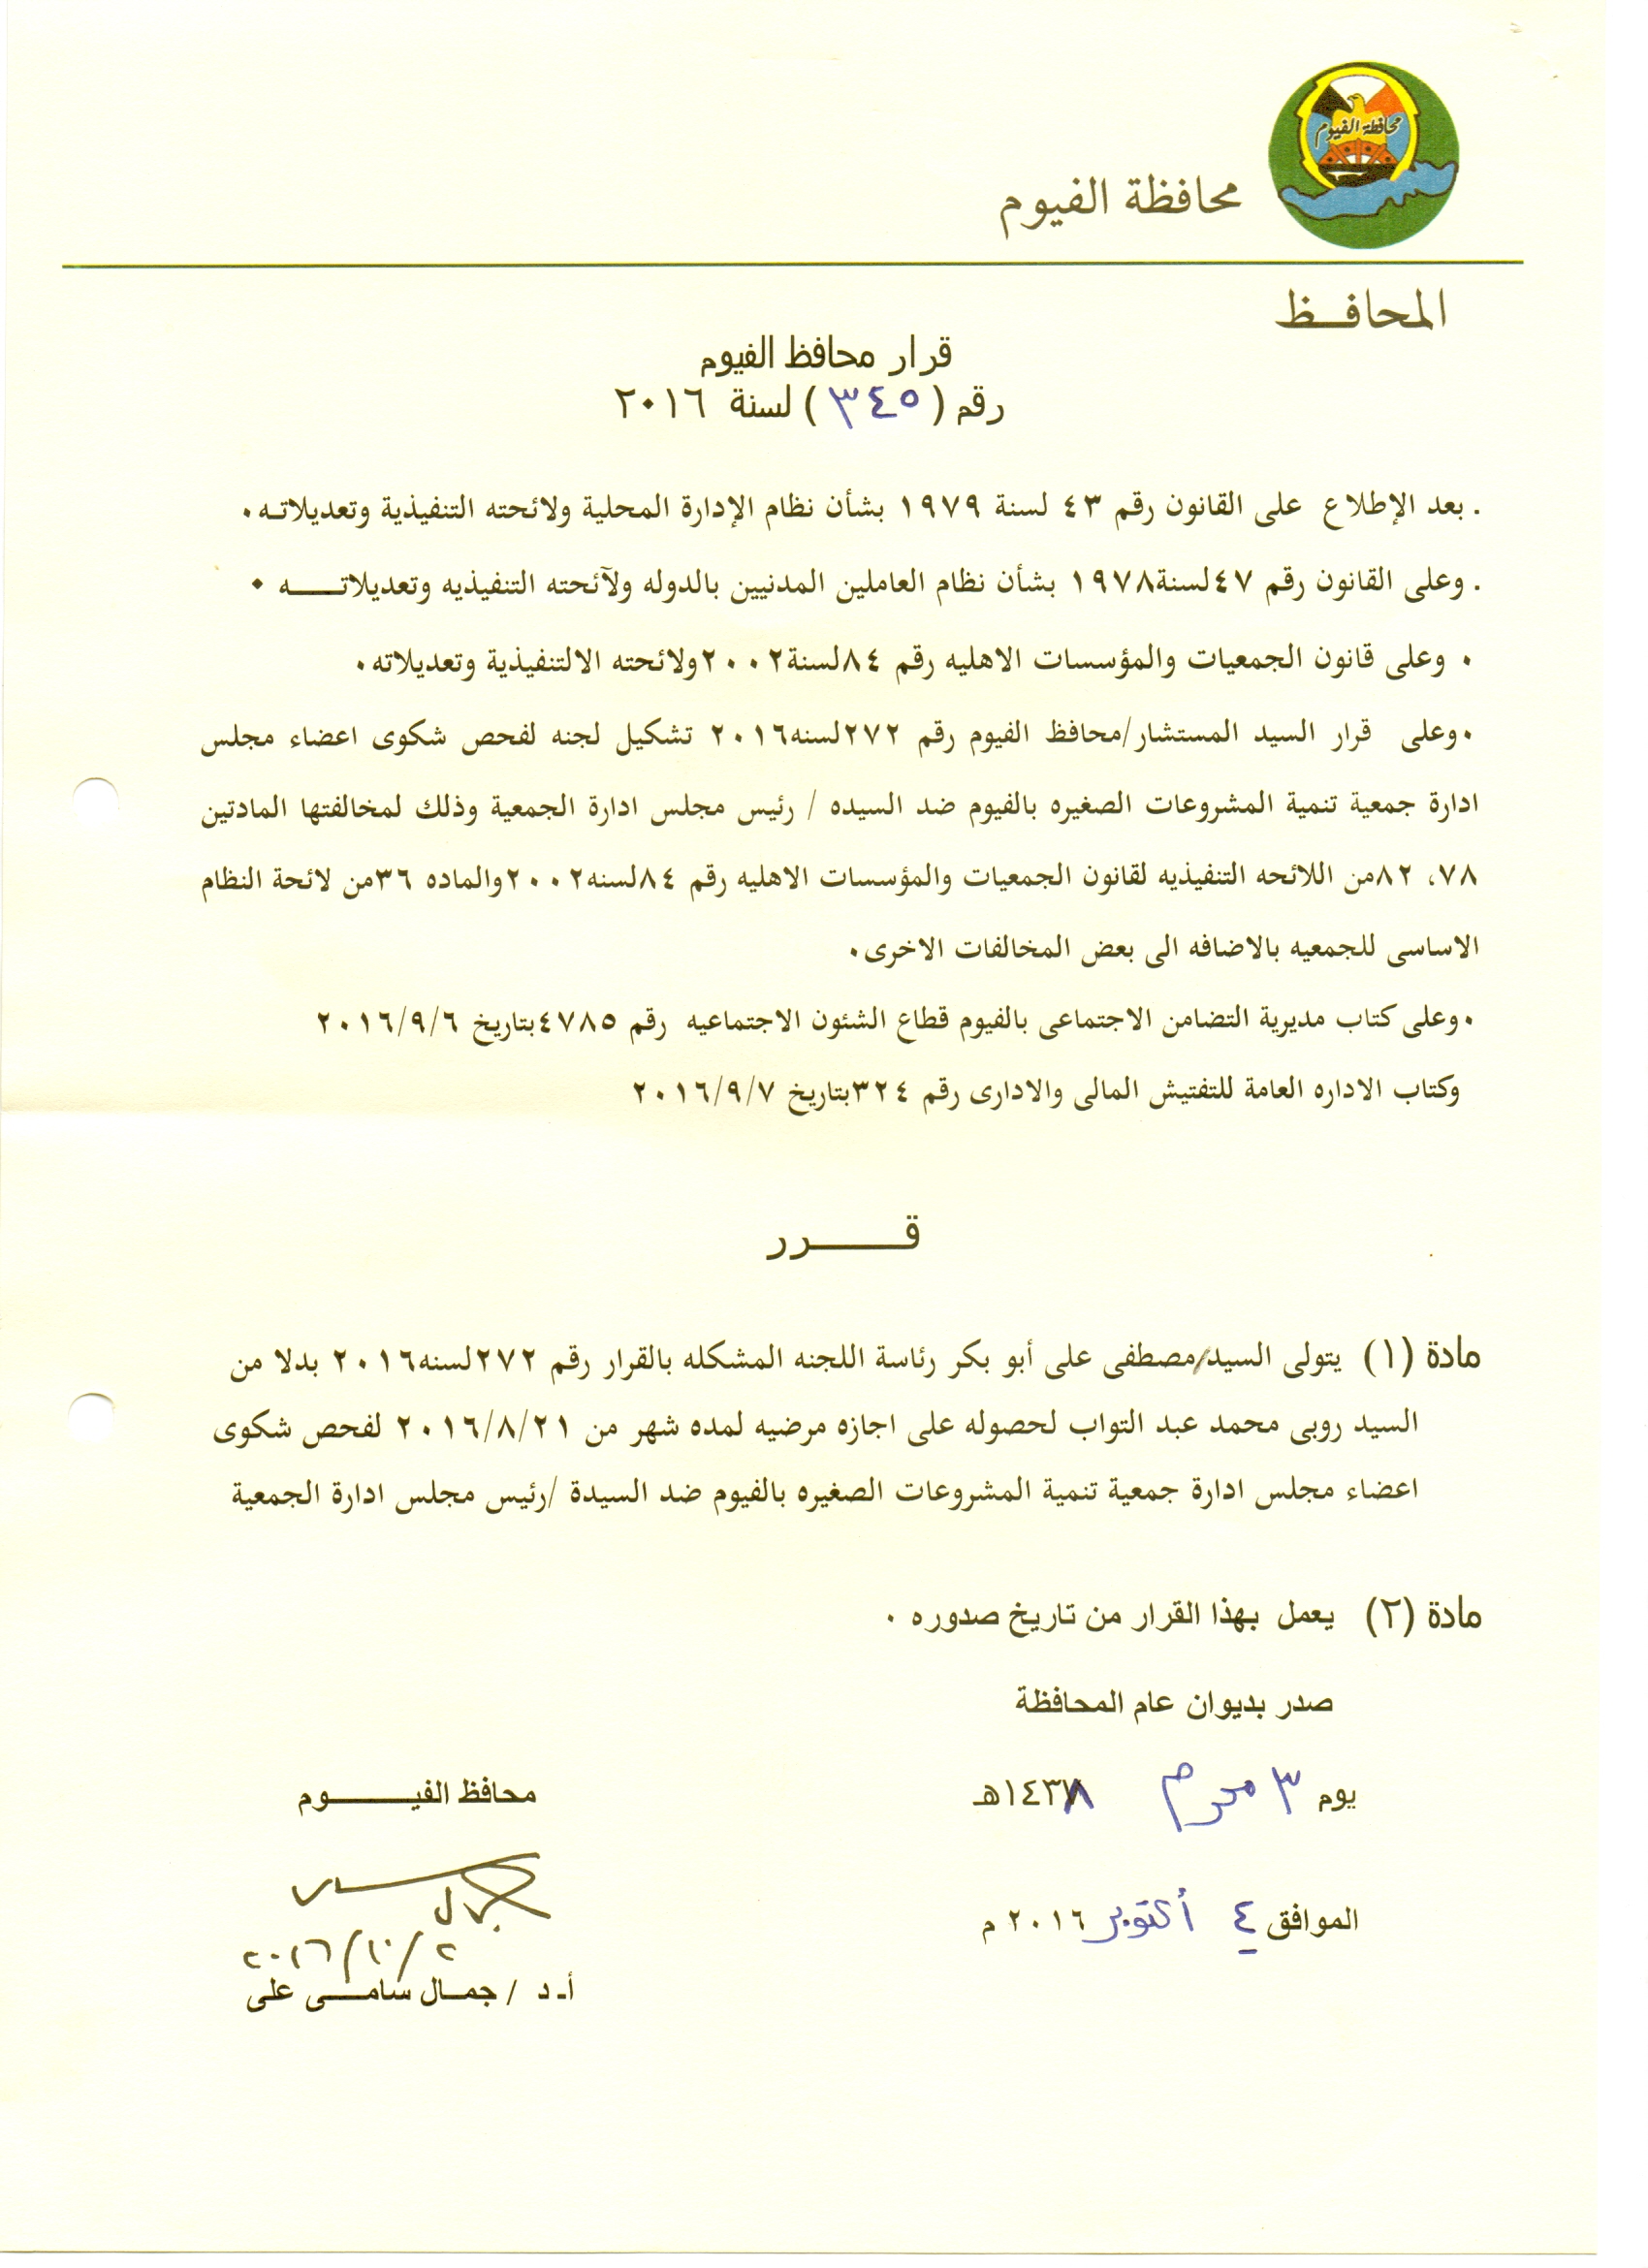 محافظة الفيوم
محافظة الفيوم
المحافـــظ
قرار محافظ الفيوم
رقم ( ٣٤٥ ) لسنة ٢٠١٦
. بعد الإطلاع على القانون رقم ٤٣ لسنة ١٩٧٩ بشأن نظام الإدارة المحلية ولائحته التنفيذية وتعديلاتـه٠
. وعلى القانون رقم ٤٧لسنة١٩٧٨ بشأن نظام العاملين المدنيين بالدوله ولآئحته التنفيذيه وتعديلاتــــه ٠
٠ وعلى قانون الجمعيات والمؤسسات الاهليه رقم ٨٤لسنة٢٠٠٢ولائحته الالتنفيذية وتعديلاته٠
٠وعلى قرار السيد المستشار/محافظ الفيوم رقم ٢٧٢لسنه٢٠١٦ تشكيل لجنه لفحص شكوى اعضاء مجلس
ادارة جمعية تنمية المشروعات الصغيره بالفيوم ضد السيده / رئيس مجلس ادارة الجمعية وذلك لمخالفتها المادتين
٧٨، ٨٢من اللائحه التنفيذيه لقانون الجمعيات والمؤسسات الاهليه رقم ٨٤لسنه٢٠٠٢والماده ٣٦من لائحة النظام
الاساسى للجمعيه بالاضافه الى بعض المخالفات الاخرى٠
٠وعلى كتاب مديرية التضامن الاجتماعى بالفيوم قطاع الشئون الاجتماعيه رقم ٤٧٨٥بتاريخ ٢٠١٦/٩/٦
وكتاب الاداره العامة للتفتيش المالى والادارى رقم ٣٢٤بتاريخ ٢٠١٦/٩/٧
قــــــرر
مادة (١) يتولى السيد/مصطفى على أبو بكر رئاسة اللجنه المشكله بالقرار رقم ٢٧٢لسنه٢٠١٦ بدلا من
السيد روبى محمد عبد التواب لحصوله على اجازه مرضيه لمده شهر من ٢٠١٦/٨/٢١ لفحص شكوى
اعضاء مجلس ادارة جمعية تنمية المشروعات الصغيره بالفيوم ضد السيدة /رئيس مجلس ادارة الجمعية
مادة (٢) يعمل بهذا القرار من تاريخ صدوره ٠
صدر بديوان عام المحافظة
يوم ٣ محرم ١٤٣٨هـ
محافظ الفيــــــــوم
الموافق ٤ أكتوبر ٢٠١٦ م
جمال
٢٠١٦/١٠/٢
أ-د / جمــال سامــــى على